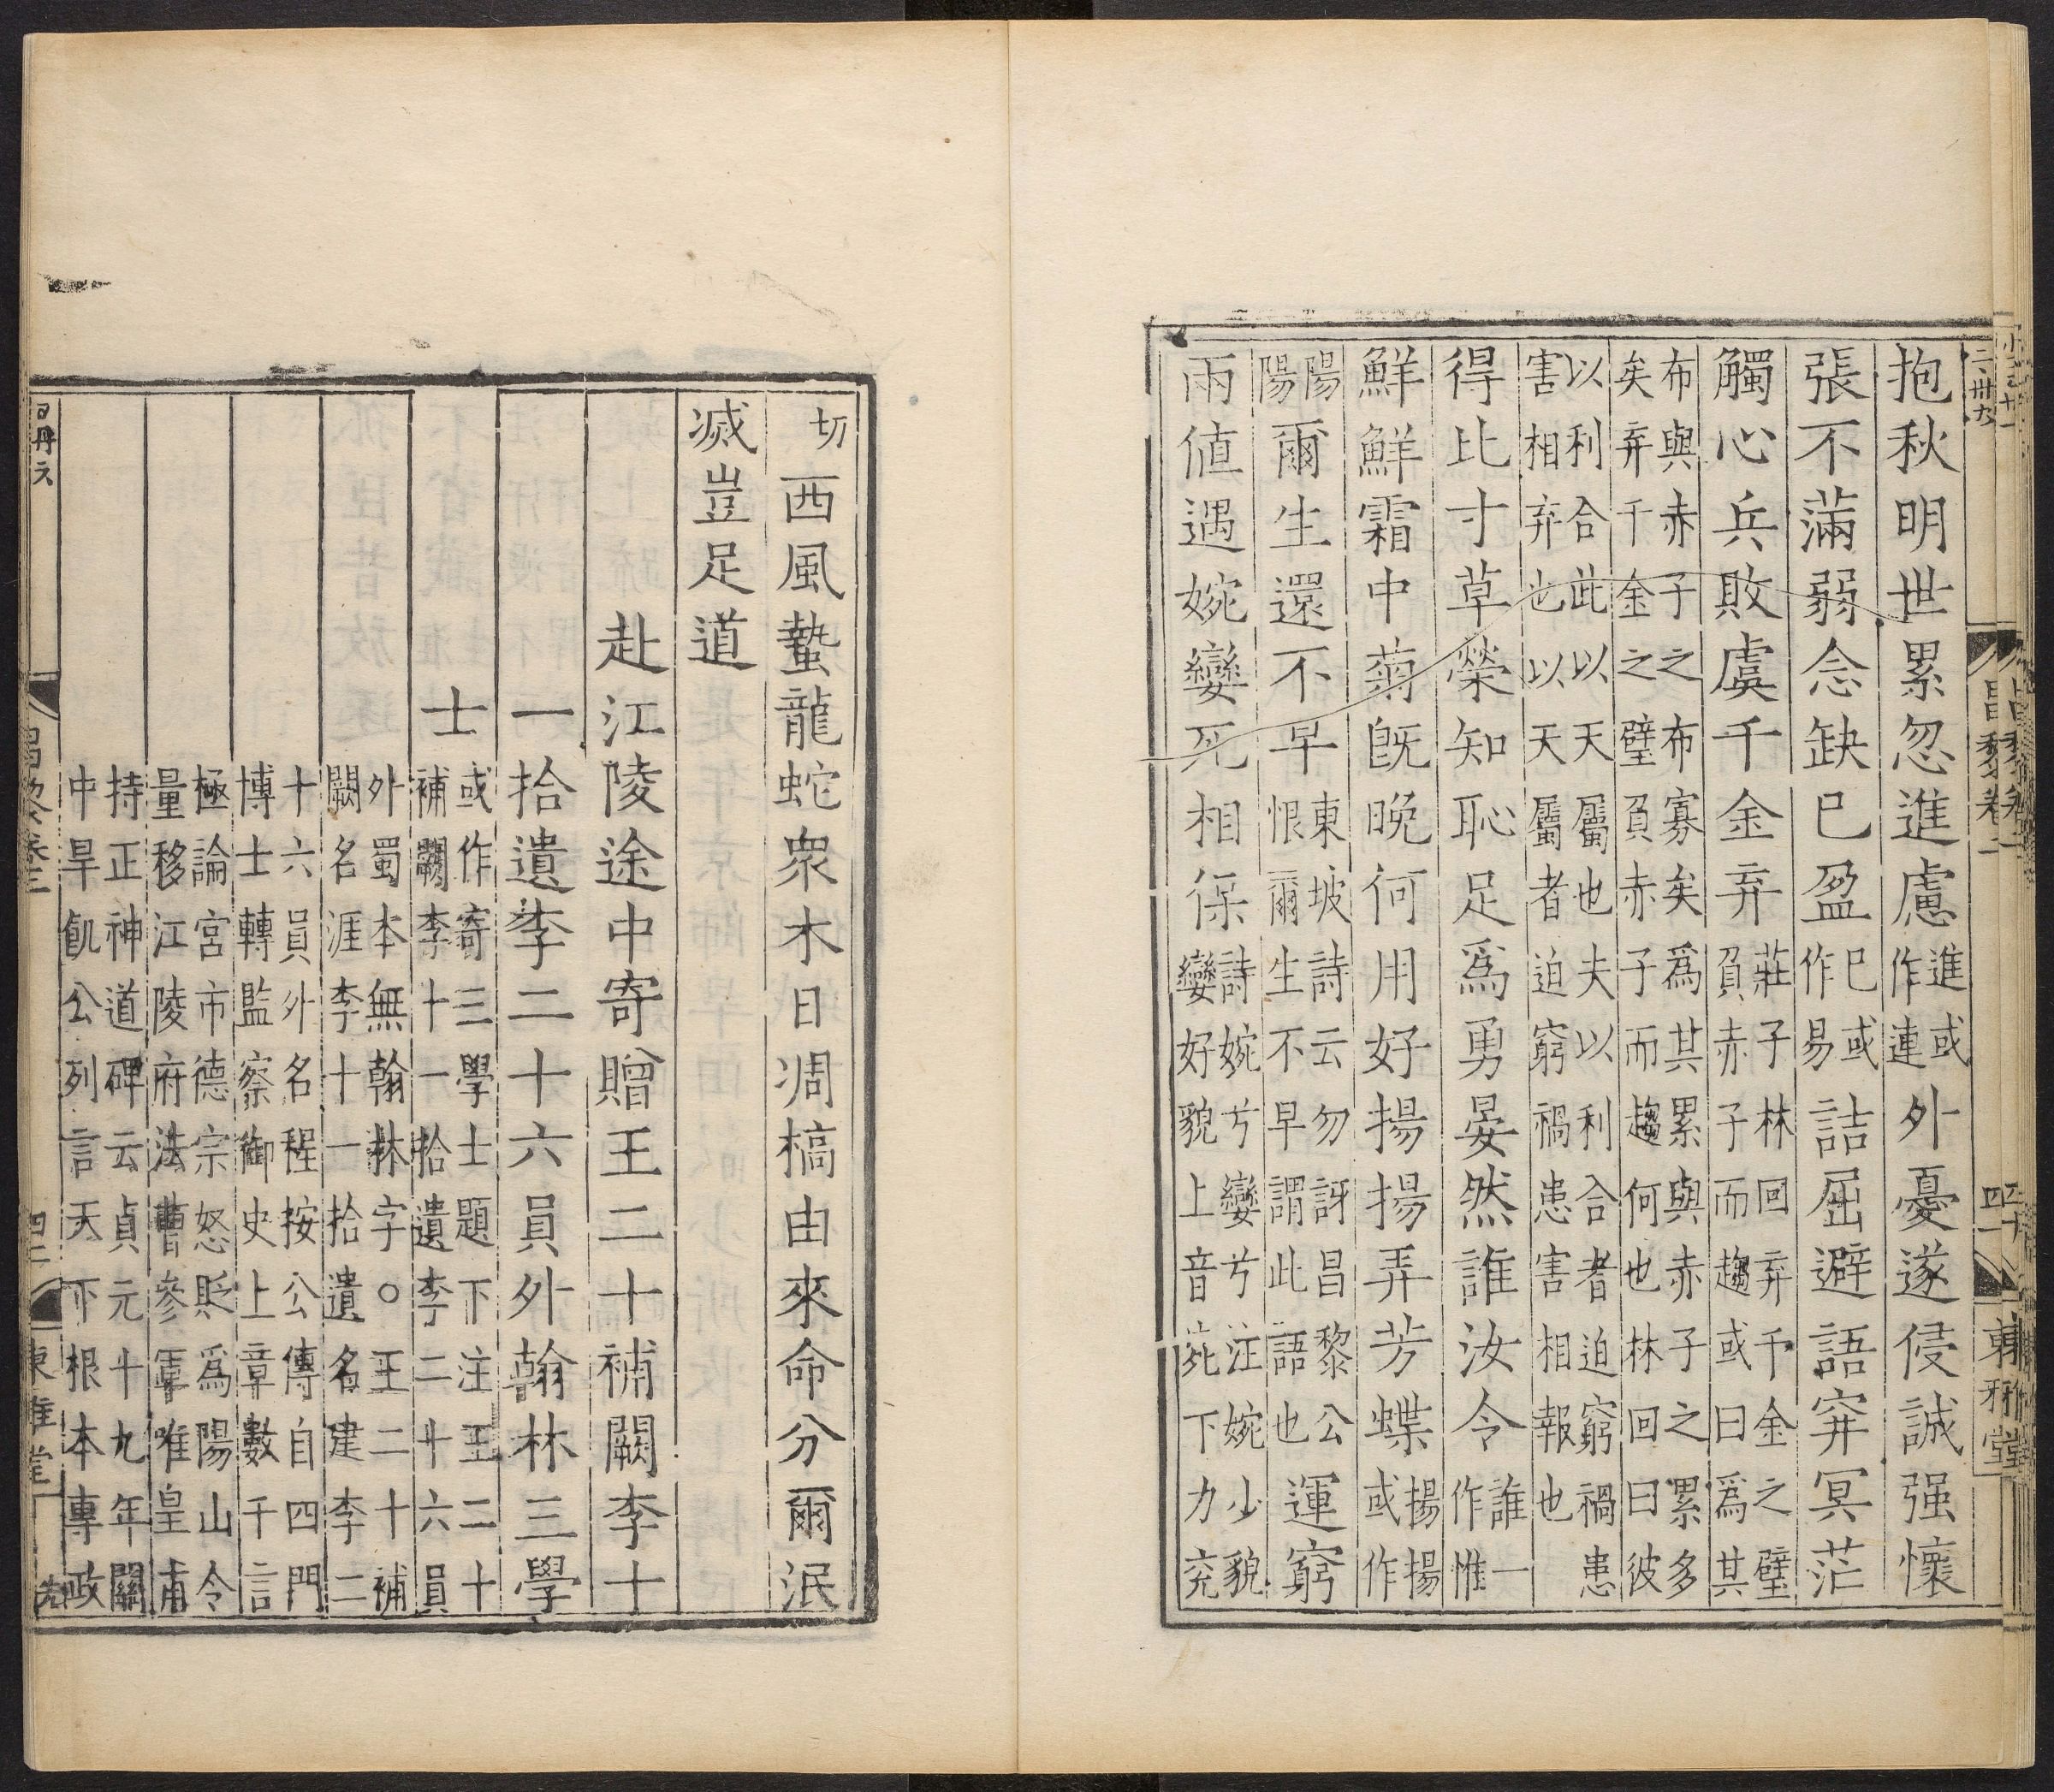 抱秋明世累忽進慮進或作連外憂遂侵誠强懷
張不滿弱念缺已盈已或作易詰屈避語穽冥茫
觸心兵敗虞千金弃莊子林回弃千金之璧負赤子而趨或曰爲其
布與赤子之布寡矣爲其累與赤子之累多矣弃千金之璧負赤子而趨何也林回曰彼
以利合此以天屬也夫以利合者迫窮禍患害相弃也以天屬者迫窮禍患害相報也
得比寸草榮知恥足爲勇晏然誰汝令誰一作惟
鮮鮮霜中菊旣晚何用好揚揚弄芳蝶揚揚或作
陽陽爾生還不早東坡詩云勿訝昌黎公恨爾生不早謂此語也運窮
兩値遇婉孌死相保詩婉兮孌兮注婉少貌孌好貌上音苑下力兖
昌黎卷二
四十一
東雅堂
切西風蟄龍蛇衆木日凋槁由來命分爾泯
滅豈足道
赴江陵途中寄贈王二十補闕李十
一拾遺李二十六員外翰林三學
士或作寄三學士題下注王二十補闕李十一拾遺李二十六員
外蜀本無翰林字○王二十補闕名涯李十一拾遺名建李二
十六員外名程按公傳自四門博士轉監察御史上章數千言
極論宮市德宗怒貶爲陽山令量移江陵府法曹參軍唯皇甫
持正神道碑云貞元十九年關中旱飢公列言天下根本專政
四二
東雅堂